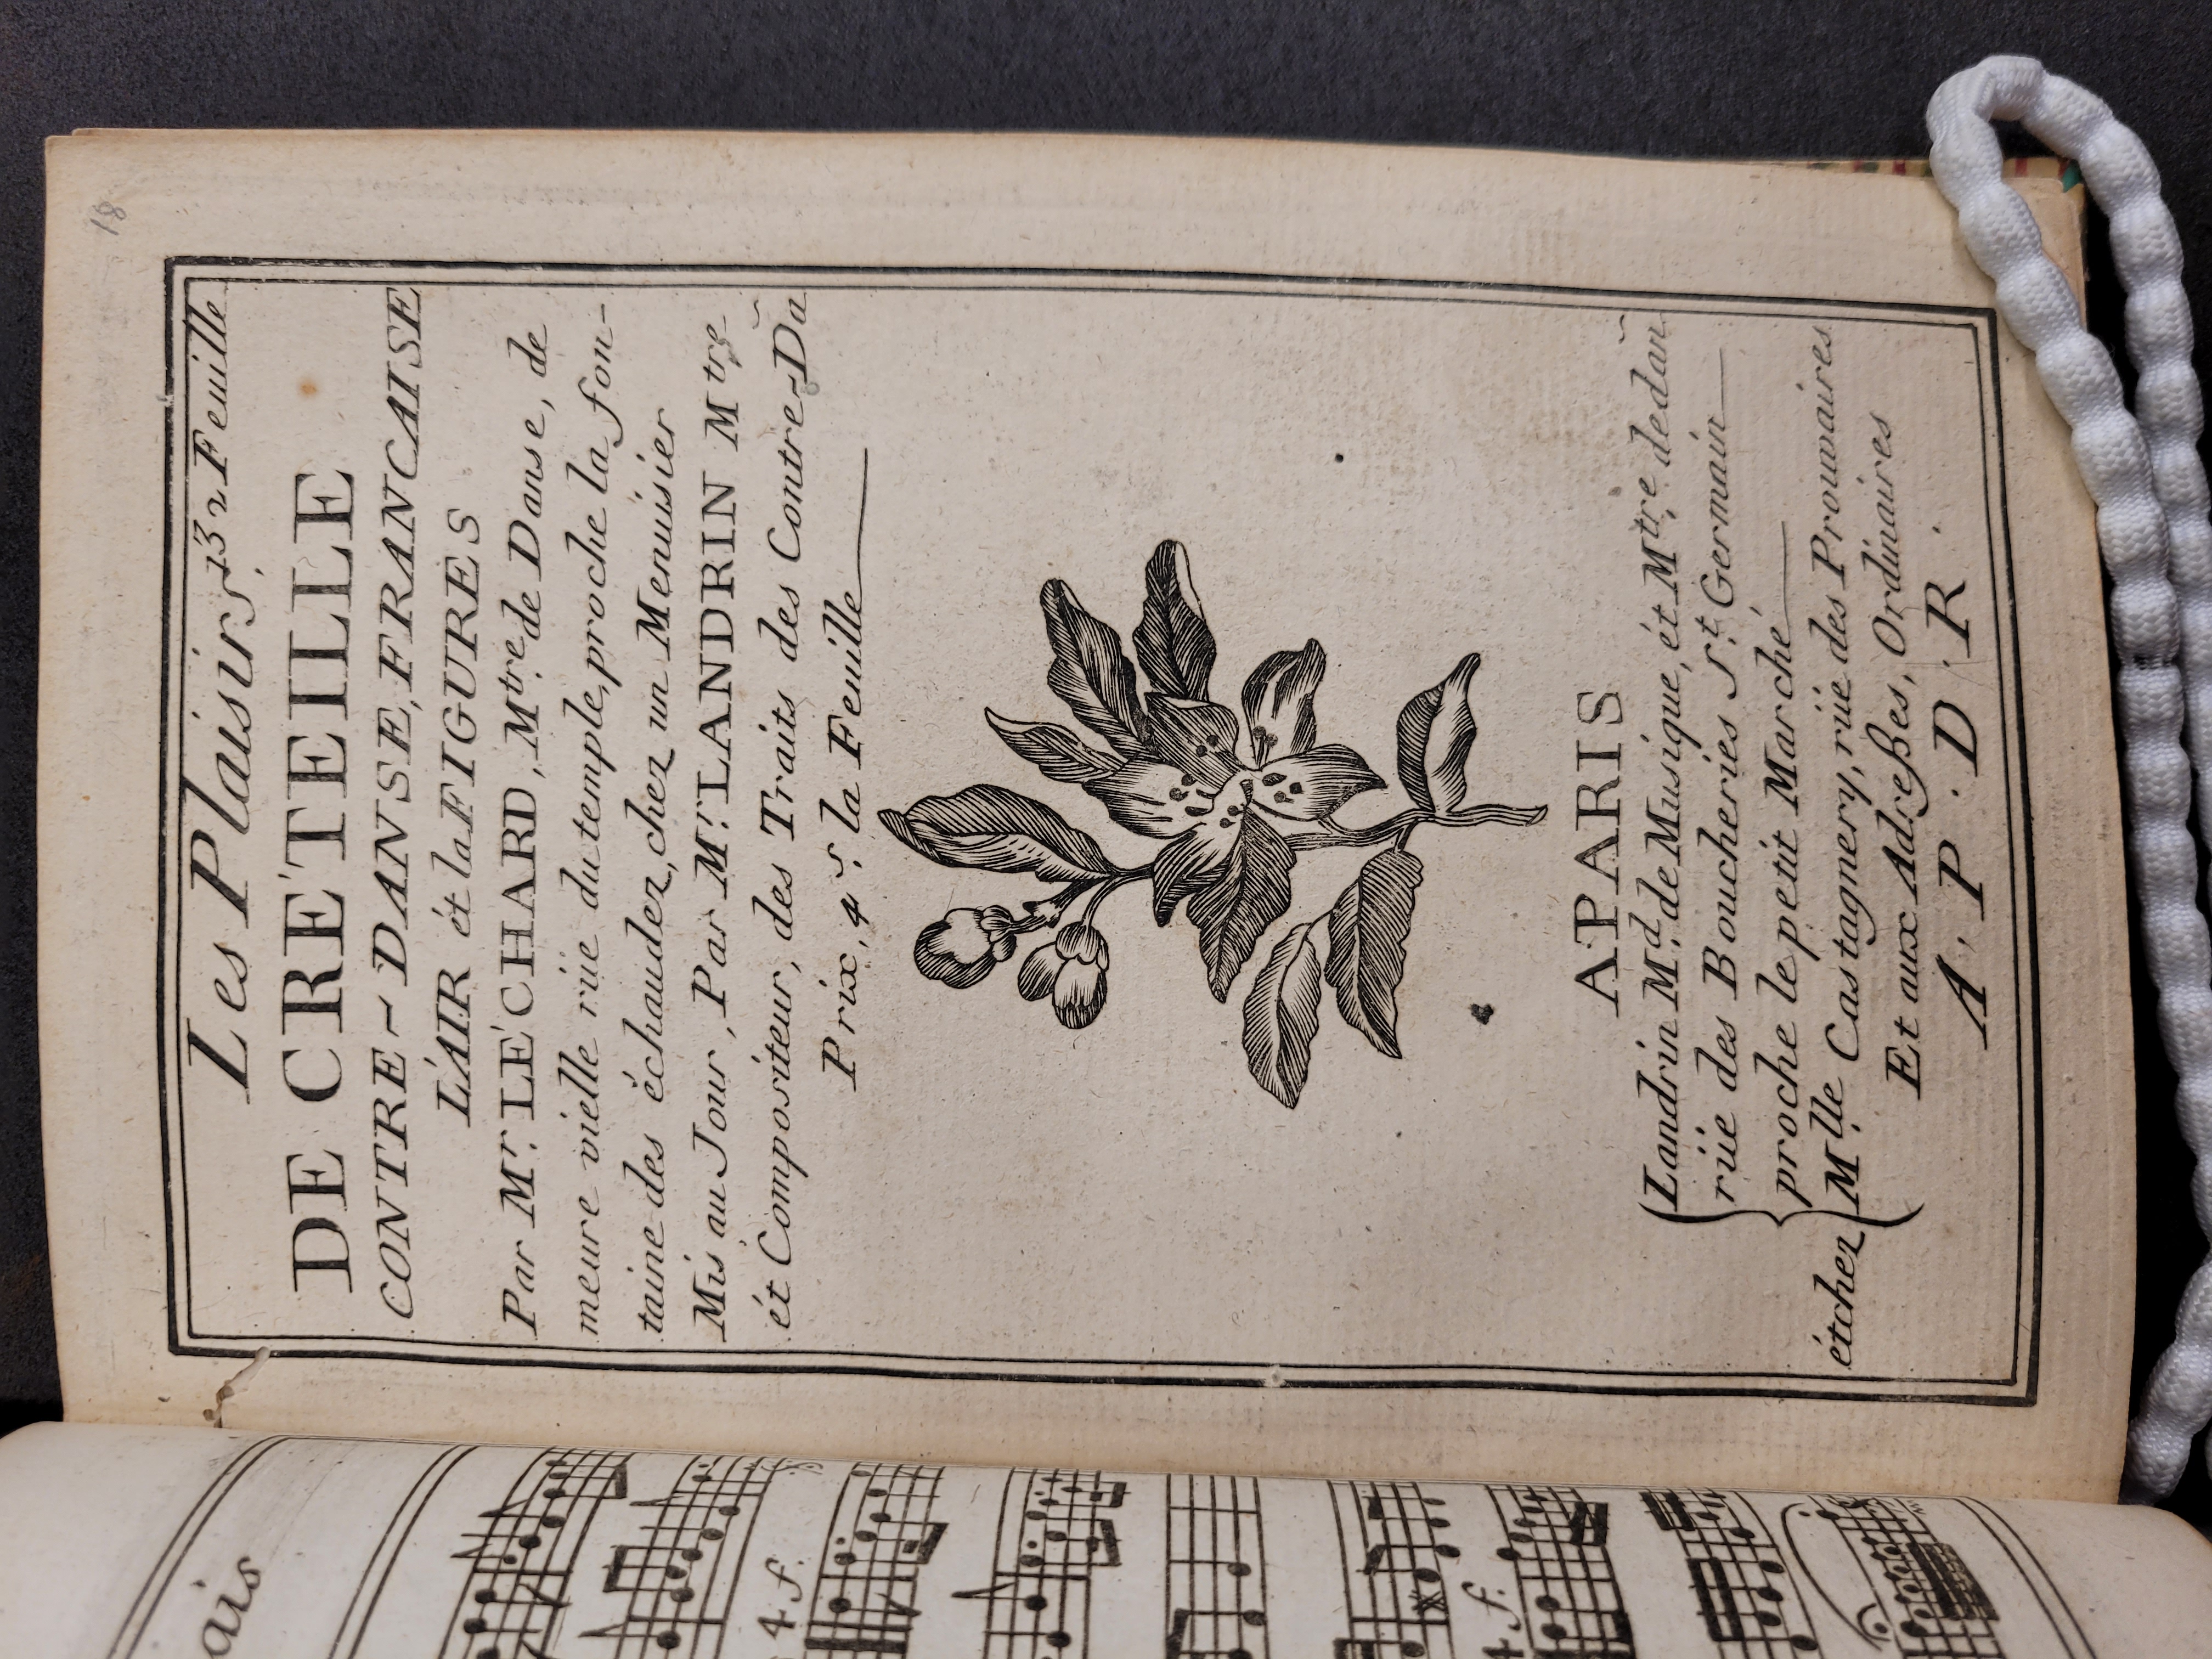 18
Les Plaisirs, 13 2 Feuille
DE CRÉTEILLE
CONTRE-DANSE, FRANCAISE
L'AIR ét la FIGURES
Par Mr. LE'CHARD, Mtre. de Danse, de
meure vielle rüe du temple, proche la fon-
taine des échaudez, chez un Menuisier
Mis au Jour, Par Mr. LANDRIN Mtre.
ét Compositeur, des Traits des Contre-Dã
Prix, 4 s. la Feuille
A PARIS
Landrin Md. de Musique, ét Mtre. de dañ
rüe des Boucheries St. Germain
proche le petit Marché
étchez Mlle Castagnery, rüe des Prouvaires
Et aux Adreßes, Ordinaires
A, P . D . R .
ais
4 f.
4 f.